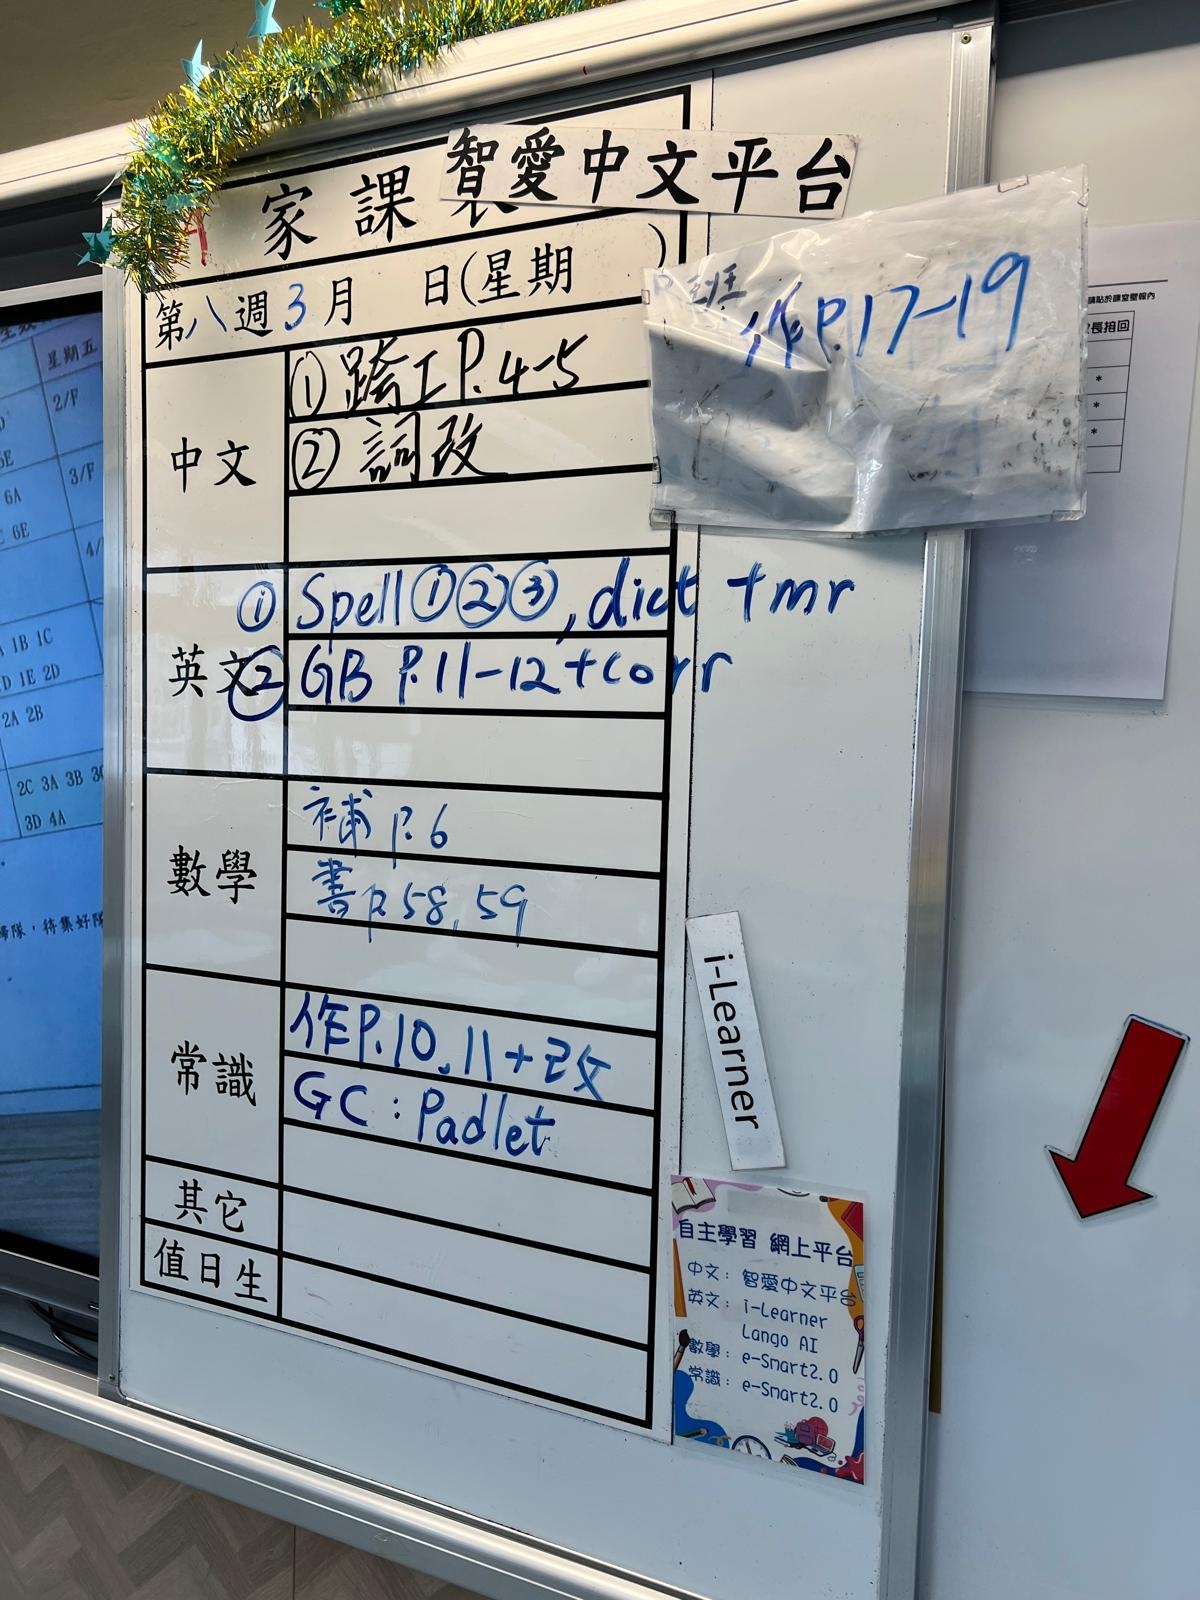 智愛中文平台
家課表
第八週3月 日(星期 )
班
作P.17-19
中文
① 跨工P.4-5
② 詞改
英文
① Spell①②③, dict tmr
② GB P.11-12+corr
數學
補 P.6
書P.58,59
常識
作P.10,11+改
GC:Padlet
其它
值日生
i-Learner
自主學習 網上平台
中文: 智愛中文平台
英文: i-Learner
Lango AI
數學: e-Smart2.0
常識: e-Smart2.0
星期五
2/F
5E
3/F
6A
6E
4/
1B 1C
1E 2D
2A 2B
2C 3A 3B
3D 4A
隊,待集好隊
請貼於課堂壁報內
長捎回
*
*
*